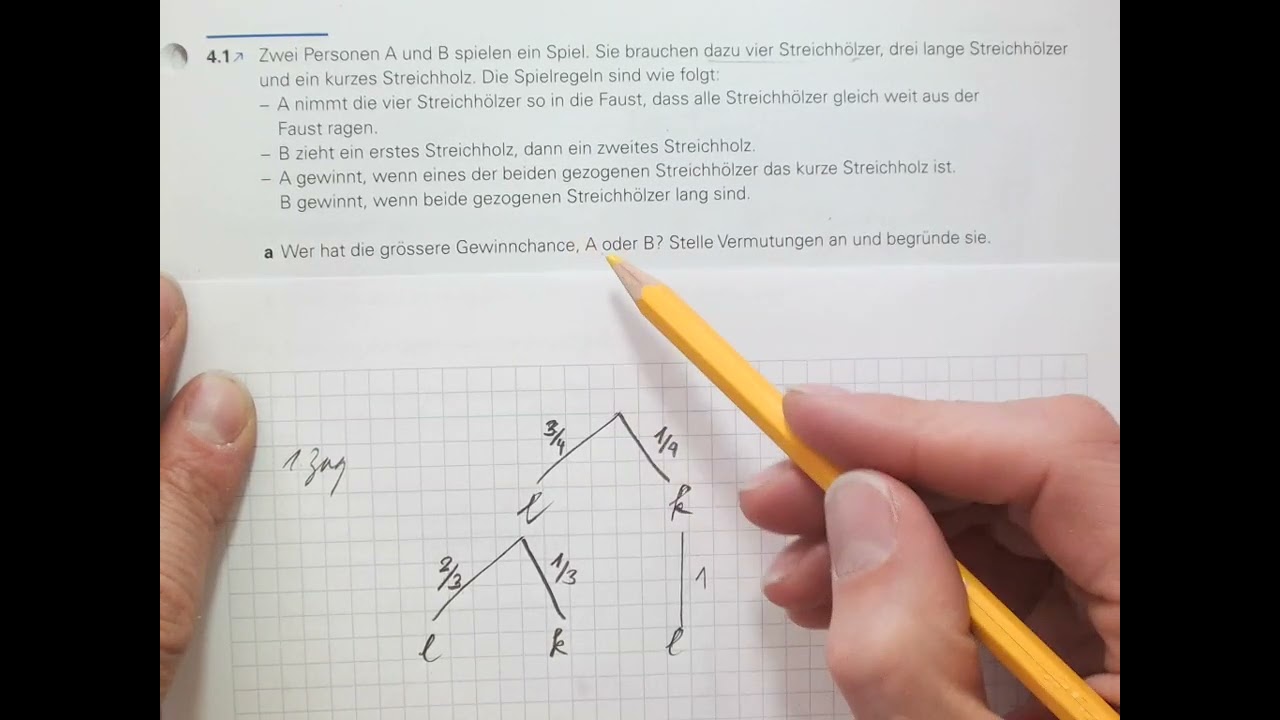 4.1↗ Zwei Personen A und B spielen ein Spiel. Sie brauchen dazu vier Streichhölzer, drei lange Streichhölzer
und ein kurzes Streichholz. Die Spielregeln sind wie folgt:
– A nimmt die vier Streichhölzer so in die Faust, dass alle Streichhölzer gleich weit aus der
Faust ragen.
– B zieht ein erstes Streichholz, dann ein zweites Streichholz.
– A gewinnt, wenn eines der beiden gezogenen Streichhölzer das kurze Streichholz ist.
B gewinnt, wenn beide gezogenen Streichhölzer lang sind.
a Wer hat die grössere Gewinnchance, A oder B? Stelle Vermutungen an und begründe sie.
3/4 1/4
1 Zug
l k
2/3 1/3 1
l k l